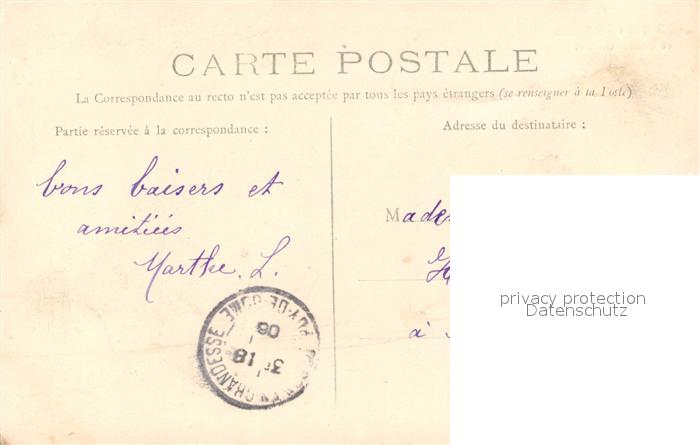 CARTE POSTALE
La Correspondance au recto n'est pas acceptée par tous les pays étrangers (se renseigner à la Poste)
Partie réservée à la correspondance :
Adresse du destinataire :
bons baisers et
amitiées
Marthe. L.
Made
à
privacy protection
Datenschutz
CHANDESSE PUY-DE-DOME
3E 18
06